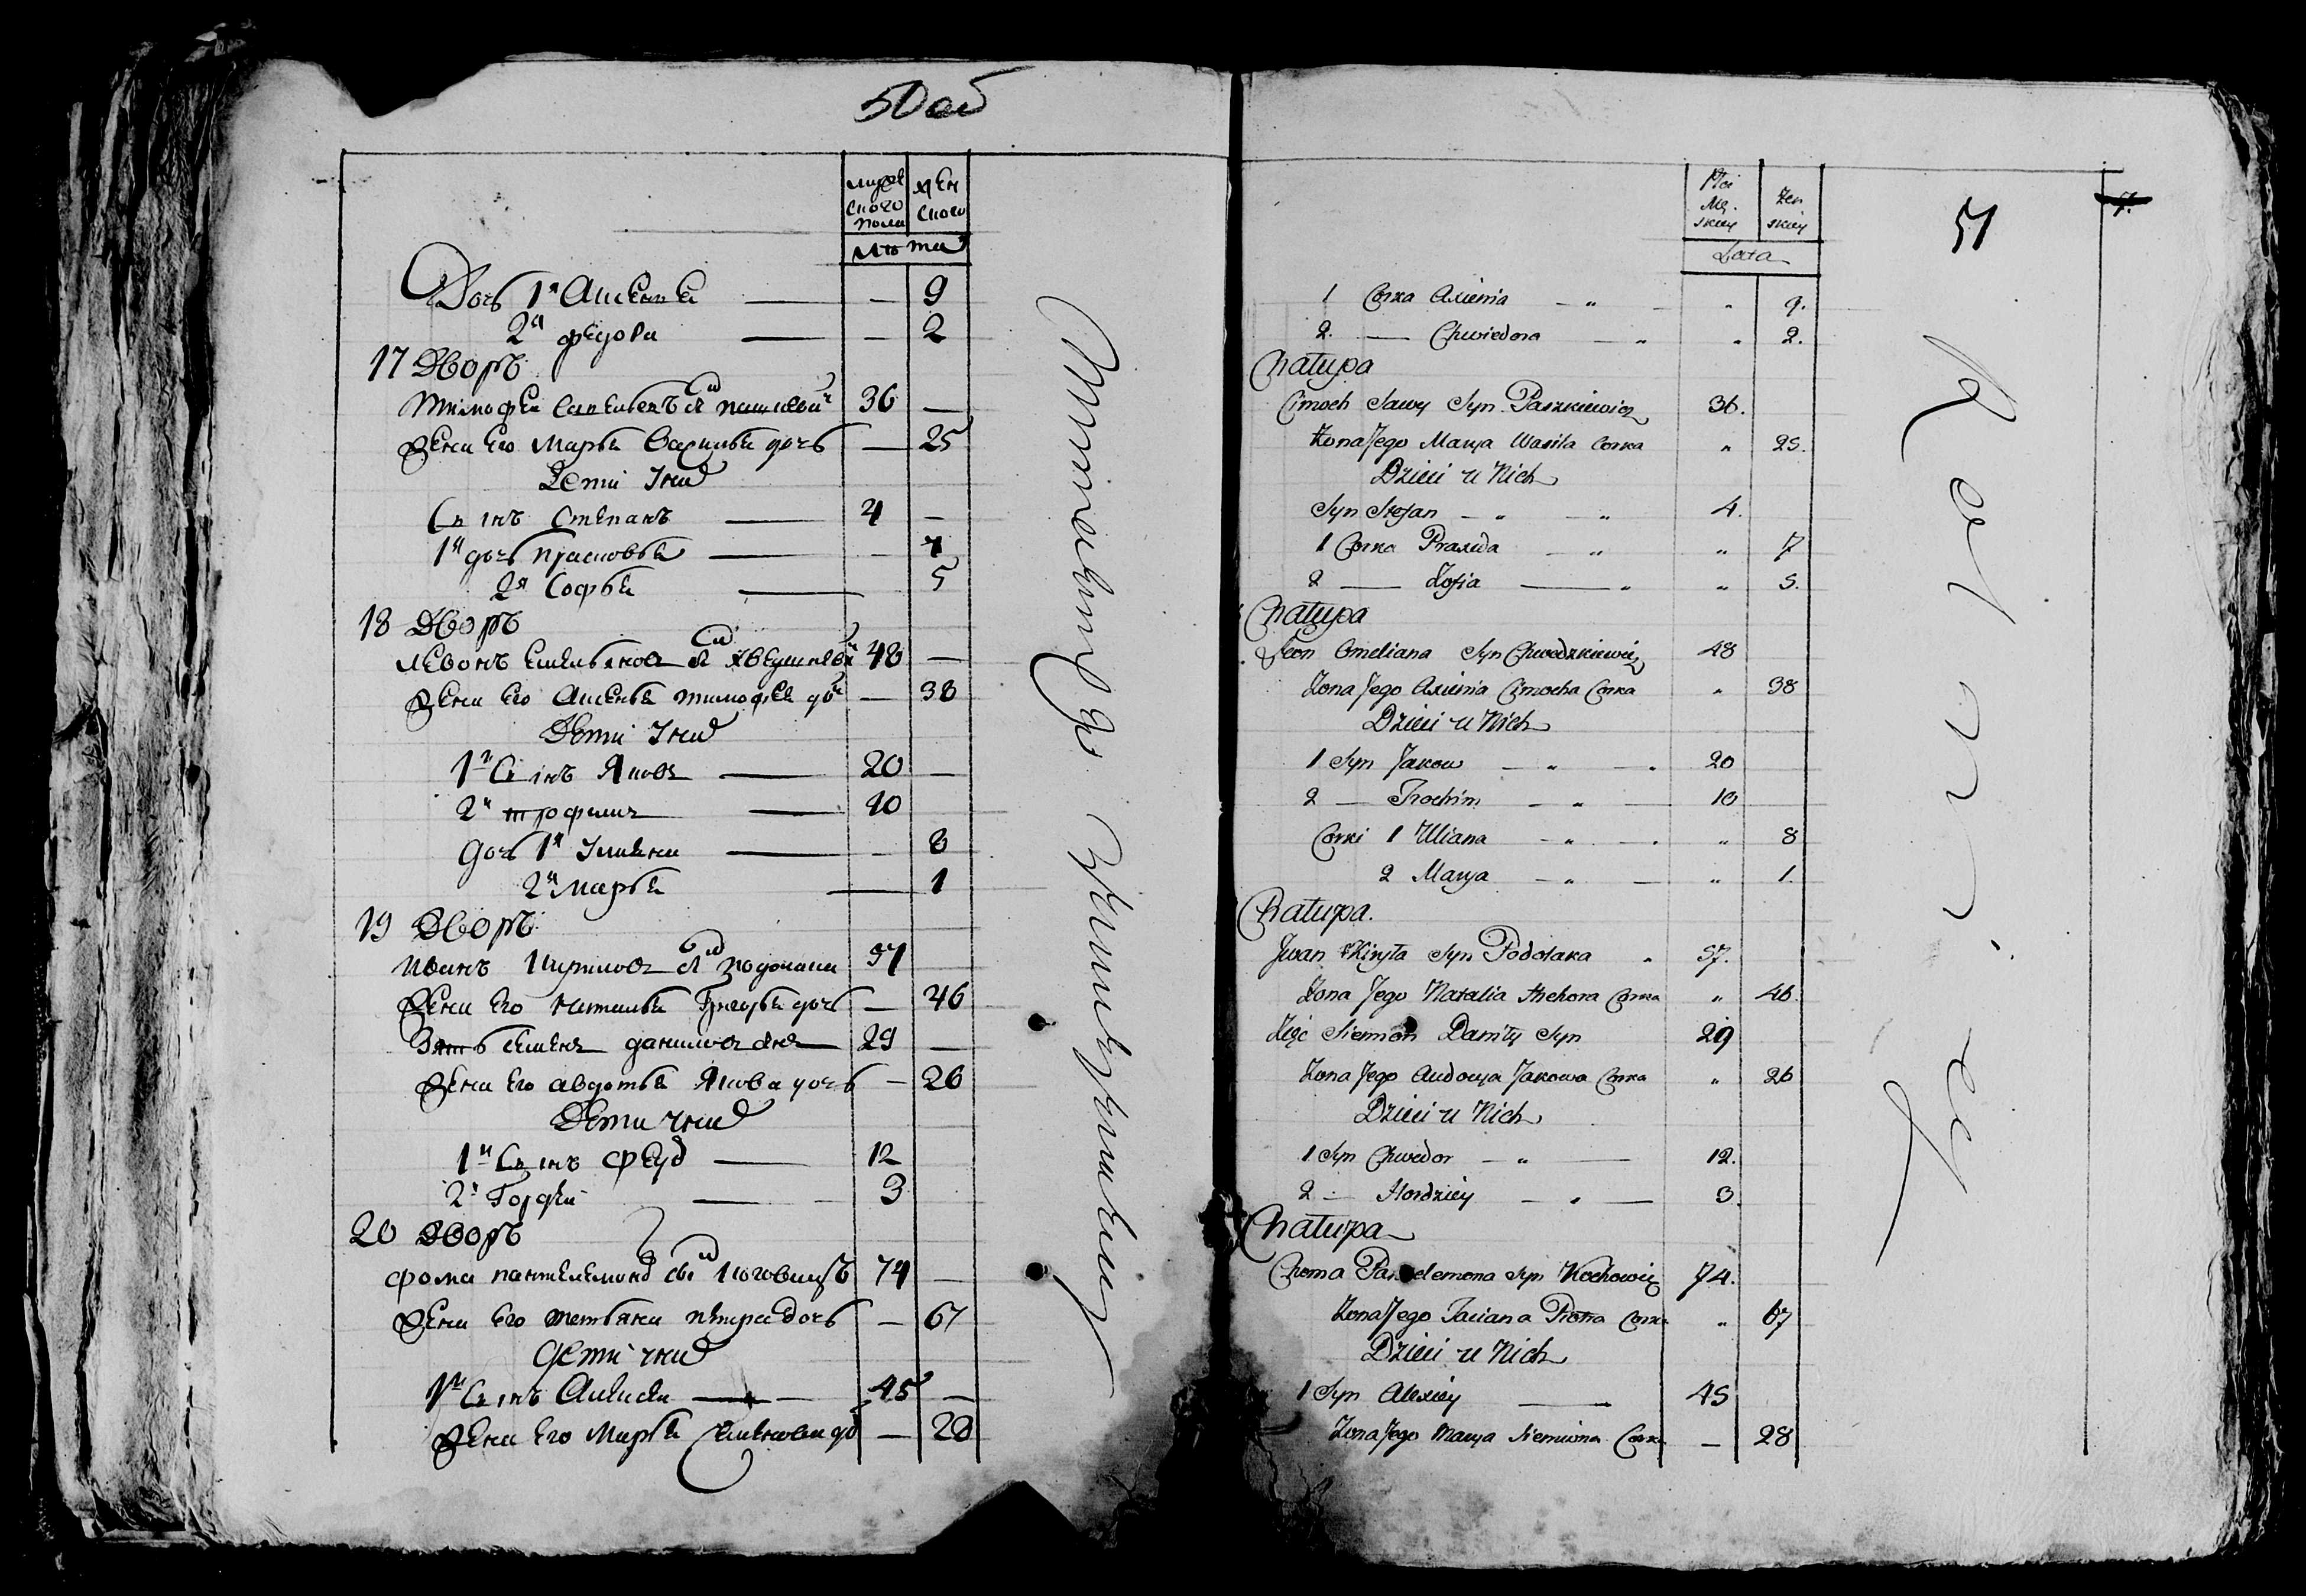 50 об
мужескаго пола
женскаго
лѣта
Дочь 1я Аксенья — 9
2я Федора — 2
17 Дворъ
Тимофей Савельевъ сын Пашкевич 36 —
Жена его Марья Василья дочь — 25
Дети у них
Сынъ Степанъ 4 —
1я дочь Прасковья — 7
2я Софья 5
18 Дворъ
Левонъ Емельянов сын 48 —
Жена его Аксенья Тимофея доч — 38
Дети у них
1й Сынъ Яков 20 —
2й Трофим 10
Дочь 1я Ульяна — 8
2я Марья 1
19 Дворъ
Иванъ Кирилов сын Подолака 57
Жена его Наталья Григорья дочь — 46
Зять Семен данилов сын 29 —
Жена его авдотья Якова дочь — 26
Дети у них
1й Сынъ Федор 12
2й Гордей 3
20 Дворъ
Фома пантелемона сын 74 —
Жена его Татьяна Петра дочь — 67
Дети у них
1й Сынъ Алексей 45 —
Жена его Марья Семенова до — 28
Płci Mę. skiey
Żen skiey
Lata
51
7.
1 Corka Axienia „ 9.
2. — Chwiedora „ 2.
Chatupa
Cimoch Sawy Syn Paszkiewicz 36.
Żona Jego Marya Wasila Corka „ 25.
Dzieci u Nich
Syn Stefan 4.
1 Corka Praxeda „ 7
2 — Zofia „ 5.
Chatupa
Leon Omeliana Syn Chwedzkiewicz 48
Żona Jego Axienia Cimocha Corka „ 38
Dzieci u Nich
1 Syn Jakow 20
2 — Trochim 10
Corki 1 Uliana „ 8
2 Marya „ 1.
Chatupa.
Iwan Kiryła Syn Podolaka 57.
Żona Jego Natalia Hrehora Corka „ 46.
Zięć Siemion Daniły Syn 29
Żona Jego Audocya Jakowa Corka „ 26
Dzieci u Nich
1 Syn Chwedor 12.
2 — Hordziey 3.
Chatupa
Choma Pantelemona Syn Kochowicz 74.
Żona Jego Taciana Piotra Corka „ 67
Dzieci u Nich
1 Syn Alexiey 45
Żona Jego Marya Siemiona Corka — 28